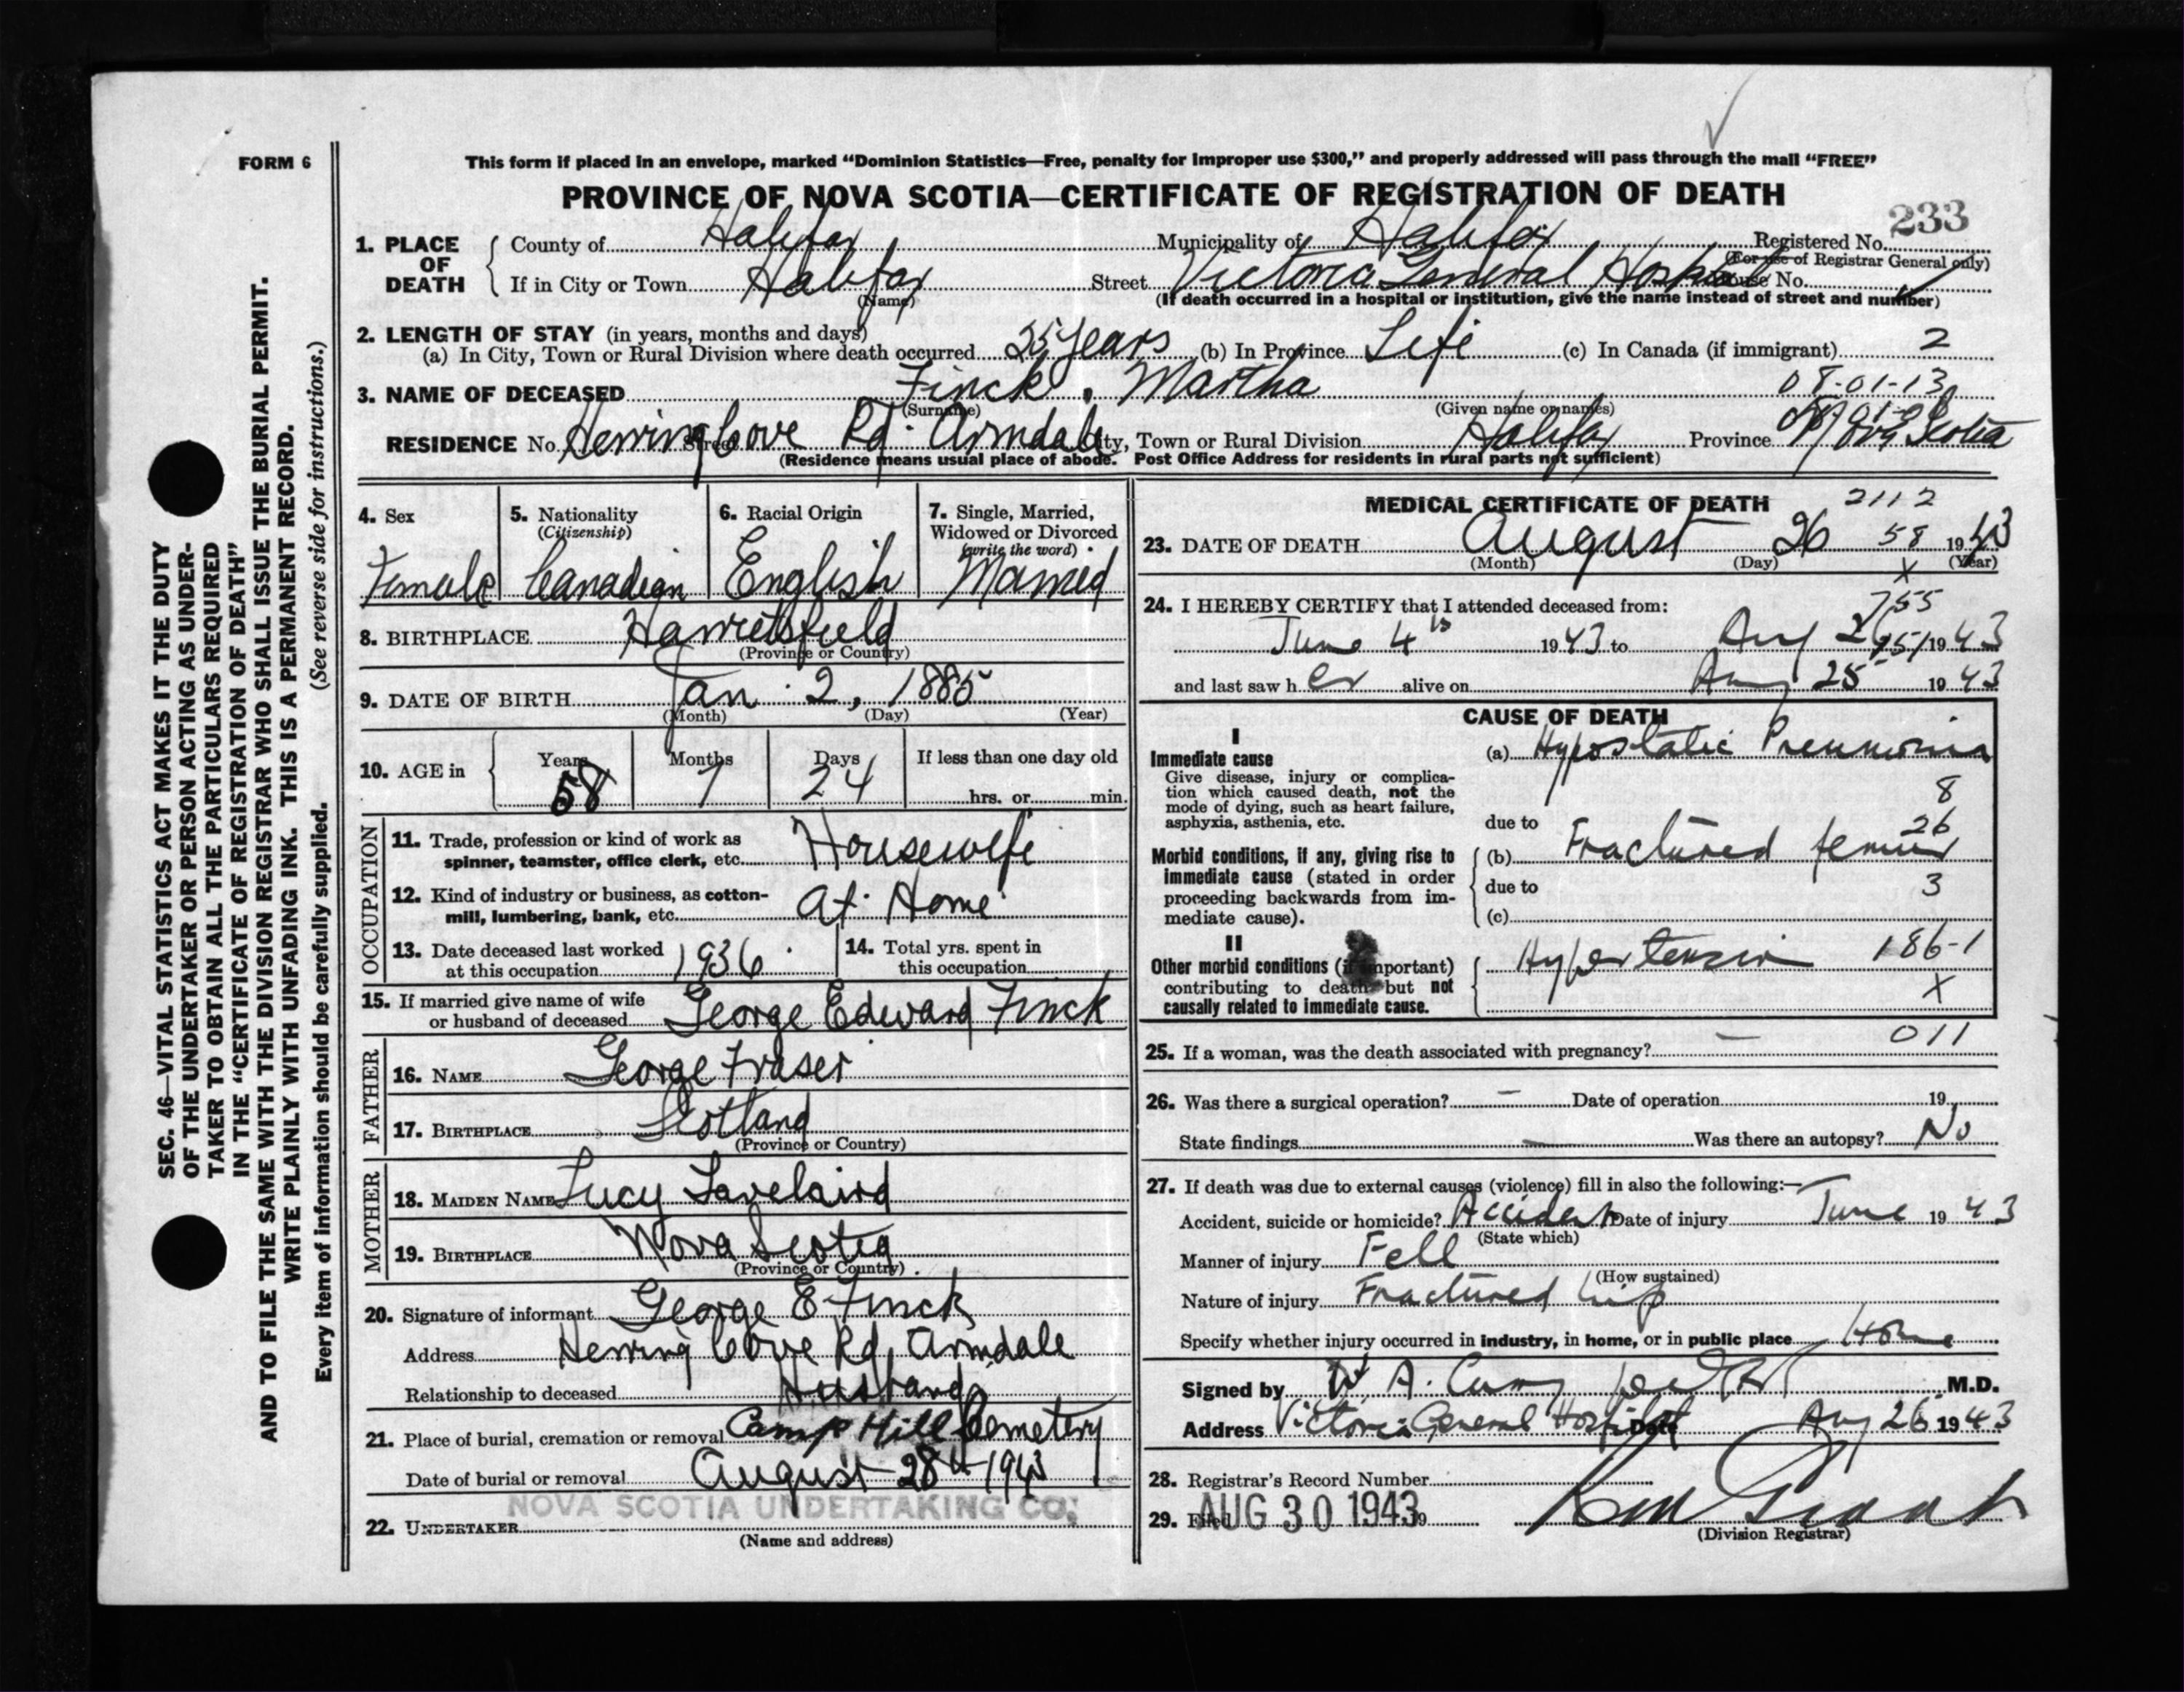 FORM 6
This form if placed in an envelope, marked “Dominion Statistics—Free, penalty for improper use $300,” and properly addressed will pass through the mail “FREE”
PROVINCE OF NOVA SCOTIA—CERTIFICATE OF REGISTRATION OF DEATH
233
1. PLACE OF DEATH
County of Halifax Municipality of Halifax Registered No.
(For use of Registrar General only)
If in City or Town Halifax Street Victoria General Hospital House No.
(Name) (If death occurred in a hospital or institution, give the name instead of street and number)
2. LENGTH OF STAY (in years, months and days)
(a) In City, Town or Rural Division where death occurred 35 years (b) In Province Life (c) In Canada (if immigrant) 2
3. NAME OF DECEASED Finck, Martha 08-01-13
(Surname) (Given name or names)
RESIDENCE No. Herring Cove Rd. Armdale Street City, Town or Rural Division Halifax Province Nova Scotia
(Residence means usual place of abode. Post Office Address for residents in rural parts not sufficient)
SEC. 46—VITAL STATISTICS ACT MAKES IT THE DUTY
OF THE UNDERTAKER OR PERSON ACTING AS UNDER-
TAKER TO OBTAIN ALL THE PARTICULARS REQUIRED
IN THE “CERTIFICATE OF REGISTRATION OF DEATH”
AND TO FILE THE SAME WITH THE DIVISION REGISTRAR WHO SHALL ISSUE THE BURIAL PERMIT.
WRITE PLAINLY WITH UNFADING INK. THIS IS A PERMANENT RECORD.
Every item of information should be carefully supplied. (See reverse side for instructions.)
4. Sex
Female
5. Nationality
(Citizenship)
Canadian
6. Racial Origin
English
7. Single, Married,
Widowed or Divorced
(write the word)
Married
8. BIRTHPLACE Harrietsfield
(Province or Country)
9. DATE OF BIRTH Jan. 2, 1885
(Month) (Day) (Year)
10. AGE in
Years Months Days If less than one day old
58 7 24 hrs. or min.
OCCUPATION
11. Trade, profession or kind of work as
spinner, teamster, office clerk, etc. Housewife
12. Kind of industry or business, as cotton-
mill, lumbering, bank, etc. At Home
13. Date deceased last worked
at this occupation 1936
14. Total yrs. spent in
this occupation
15. If married give name of wife
or husband of deceased George Edward Finck
FATHER
16. NAME George Fraser
17. BIRTHPLACE Scotland
(Province or Country)
MOTHER
18. MAIDEN NAME Lucy
19. BIRTHPLACE Nova Scotia
(Province or Country)
20. Signature of informant George E Finck
Address Herring Cove Rd, Armdale
Relationship to deceased Husband
21. Place of burial, cremation or removal Camp Hill Cemetery
Date of burial or removal August 28th 1943
NOVA SCOTIA UNDERTAKING CO.
22. UNDERTAKER
(Name and address)
MEDICAL CERTIFICATE OF DEATH 2112
23. DATE OF DEATH August 26 58 1943
(Month) (Day) (Year)
X
24. I HEREBY CERTIFY that I attended deceased from:
755
June 4th 1943 to Aug 26 1943
and last saw her alive on Aug 25 1943
CAUSE OF DEATH
I
Immediate cause
Give disease, injury or complica-
tion which caused death, not the
mode of dying, such as heart failure,
asphyxia, asthenia, etc.
(a) Hypostatic Pneumonia
8
due to
26
Morbid conditions, if any, giving rise to
immediate cause (stated in order
proceeding backwards from im-
mediate cause).
(b) Fractured femur
due to 3
(c)
II
Other morbid conditions (if important)
contributing to death but not
causally related to immediate cause.
Hypertension 186-1
X
25. If a woman, was the death associated with pregnancy? — 011
26. Was there a surgical operation? — Date of operation 19
State findings — Was there an autopsy? No
27. If death was due to external causes (violence) fill in also the following:—
Accident, suicide or homicide? Accident Date of injury June 1943
(State which)
Manner of injury Fell
(How sustained)
Nature of injury Fractured hip
Specify whether injury occurred in industry, in home, or in public place Home
Signed by W A. Curry M.D.
Address Victoria General Hospital Date Aug 26 1943
28. Registrar's Record Number
29. Filed AUG 30 1943
(Division Registrar)